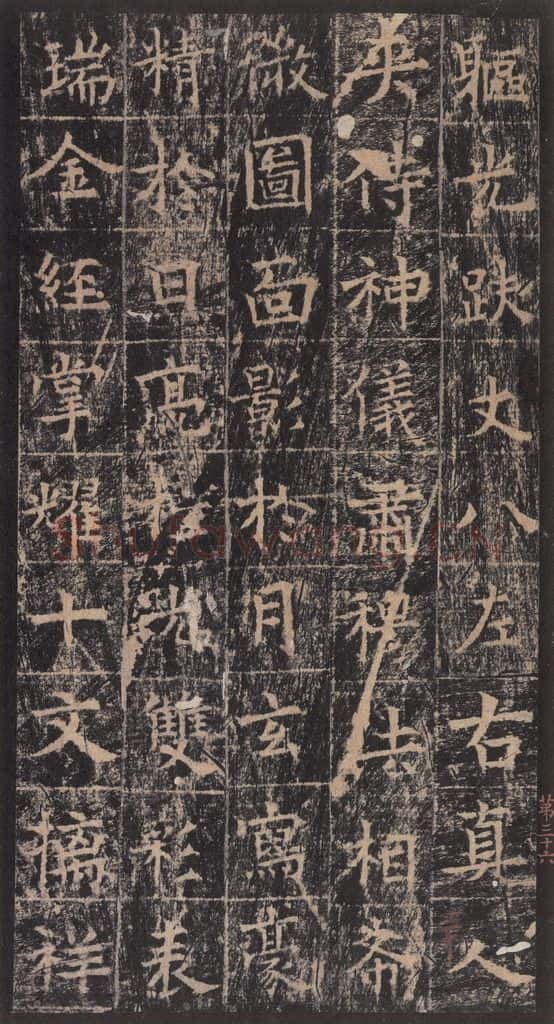 軀光趺丈八左右真人
夾侍神儀肅穆法相希
微圖啚影於月玄寫毫
精於日亮於雙彩表
瑞金經掌耀十文摛祥
shufawang.CN